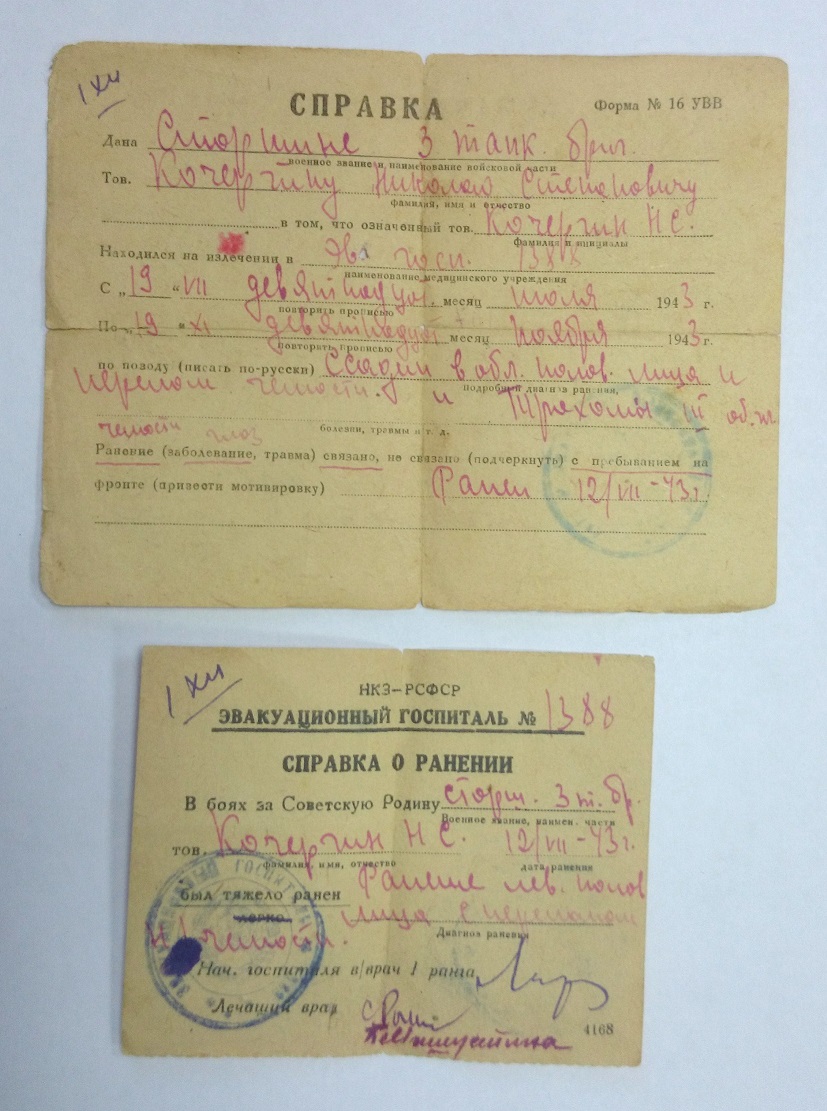 1 XII
СПРАВКА
Форма № 16 УВВ
Дана Старшине 3 танк. бриг.
военное звание и наименование войсковой части
Тов. Кочергину Николаю Степановичу
фамилия, имя и отчество
в том, что означенный тов. Кочергин Н С.
фамилия и инициалы
Находился на излечении в эва госп. 1388
наименование медицинского учреждения
С „19 “ VII девятнадцат. месяц июля 1943 г.
повторить прописью
По „19 “ XI девятнадцат месяц ноября 1943 г.
повторить прописью
по поводу (писать по-русски) в обл. полов. лица и
подробный диагноз ранения,
перелом челюсти. и Трахомы III
болезни, травмы и т. д.
челюсти глаз
Ранение (заболевание, травма) связано, не связано (подчеркнуть) с пребыванием на
фронте (привести мотивировку) Ранен 12/VII-43 г
1 XII
НКЗ—РСФСР
ЭВАКУАЦИОННЫЙ ГОСПИТАЛЬ № 1388
СПРАВКА О РАНЕНИИ
В боях за Советскую Родину старш. 3 т. бр.
Военное звание, наимен. части
тов. Кочергин Н С. 12/VII-43 г.
фамилия, имя, отчество дата ранения
был тяжело ранен Ранение лев. полов
легко лица с переломом
Диагноз ранения
н/челюсти.
Нач. госпиталя в/врач 1 ранга
Лечащий врач
4168